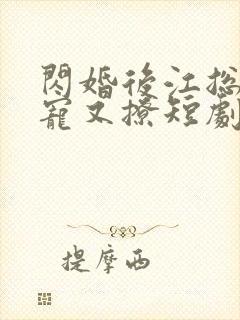 閃婚後江总
寵又撩短劇
提摩西